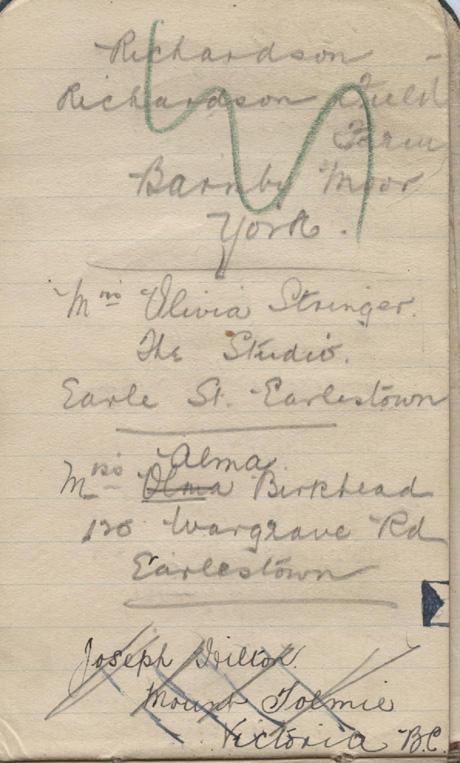 Richardson -
Richardson Field
Farm
Barnby Moor
York.
Mrs Olivia Stringer.
The Studio.
Earle St. Earlestown
Alma
Miss Olma Birkhead
126 Wargrave Rd
Earlestown
Joseph Hilton.
Mount Tolmie
Victoria B.C.